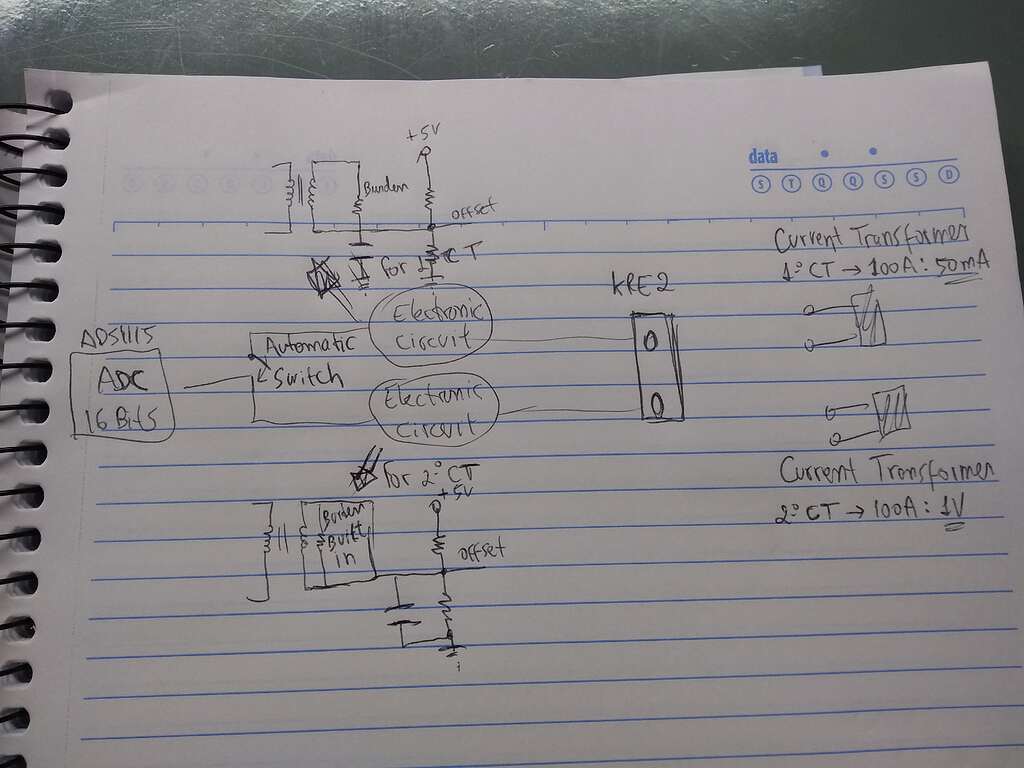 +5V
Burden
offset
data
S T Q Q S S D
Current Transformer
1° CT → 100A: 50mA
for 1° CT
KRE2
Electronic
circuit
ADS1115
ADC
16 Bits
Automatic
Switch
Electronic
circuit
for 2° CT
+5V
Burden
Built
in
offset
Current Transformer
2° CT → 100A: 1V